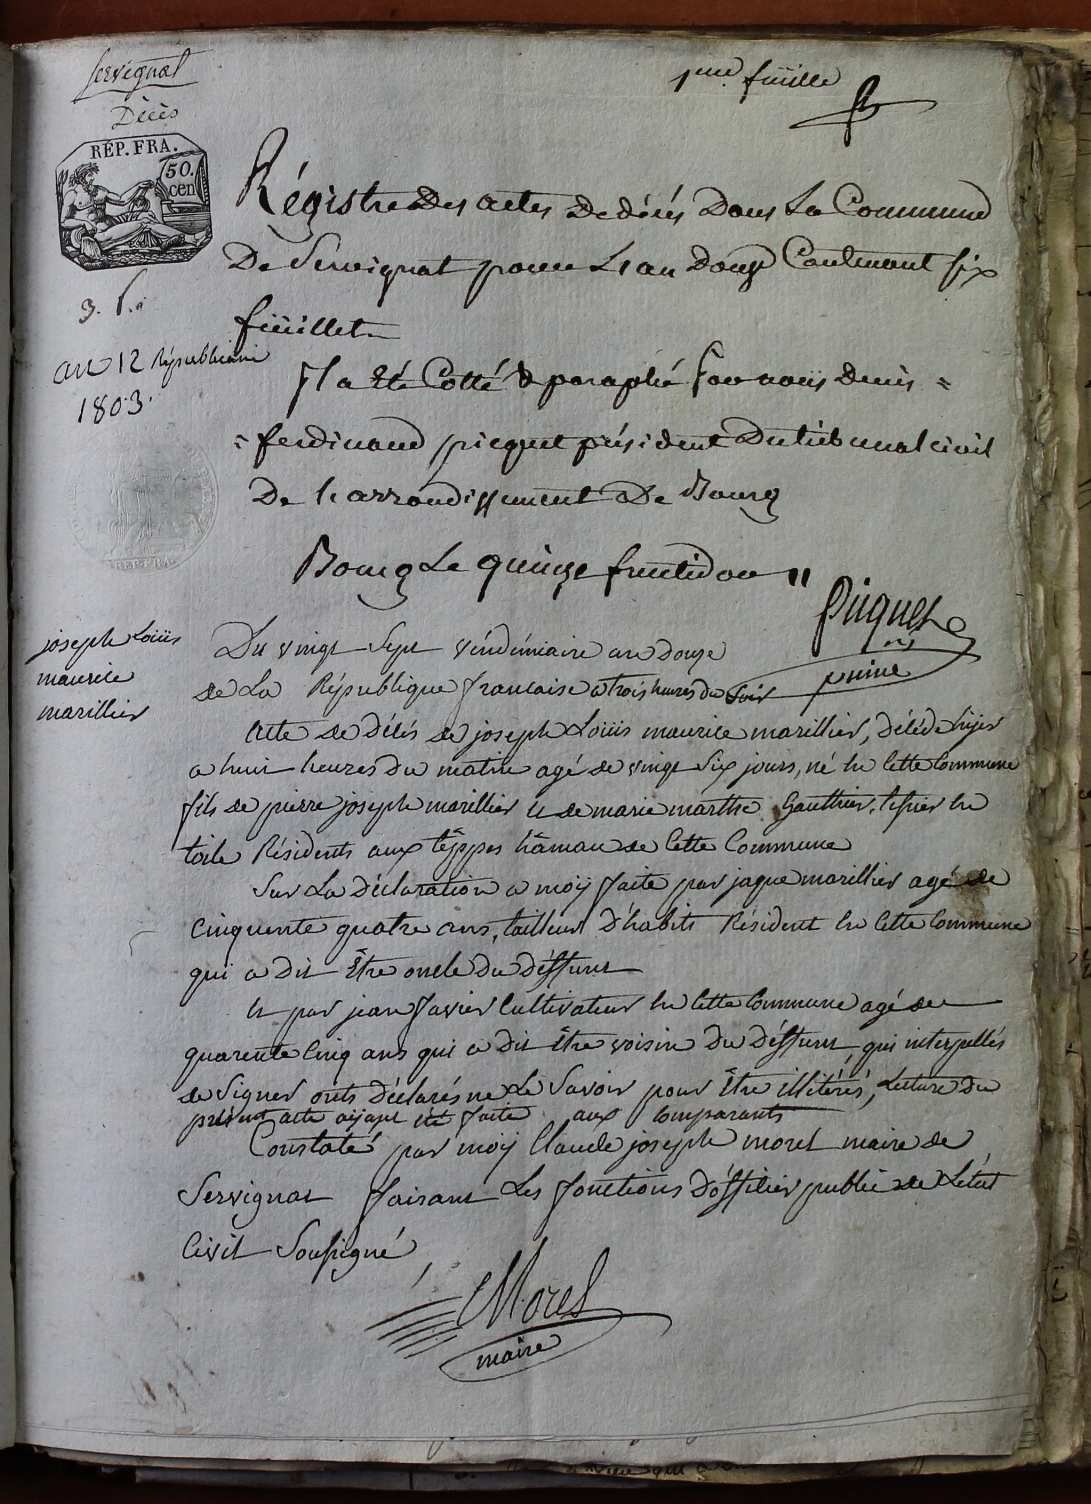 Servignat
Décès
REP. FRA.
50.
cen
1ere fuille
Régistre des actes de décés dans La Commune
De Servignat pour L'an douze Contenant six
fuillets
Il a Eté Cotté & paraphé par nous denis =
= ferdinand picquet président du tribunal civil
De l'arrondissement De Bourg
Bourg Le quinze fructidor "
an 12 Républicain
1803.
REP. FRA.
Picquet
joseph Loüis
maurice
marillier
Du vingt Sept vendémiaire an douze
de La République francaise a trois heures du Soir
Acte de décés de joseph Loüis maurice marillier, décédé hyer
a huit heures du matin agé de vingt Six jours, né en cette Commune
fils de pierre joseph marillier et de marie marthe Gauthier, tissier en
toile Résidents aux téppes hâmau de cette Commune
Sur La déclaration a moÿ faite par jaque marillier agé de
cinquente quatre ans, tailleur D'habits Résident en cette Commune
qui a dit Être oncle du déffunt
et par jean favier Cultivateur en cette Commune agé de
quarente Cinq ans qui a dit Être voisin du Déffunt, qui interpellés
de Signer onts déclarés ne Le Savoir pour Être illitérés, Lecture du
présent acte aÿant été faite aux comparants
Constaté par moÿ Claude joseph morel maire de
Servignat faisant Les fonctions d'öfficier public de L'état
Civil Soussigné
Morel
maire